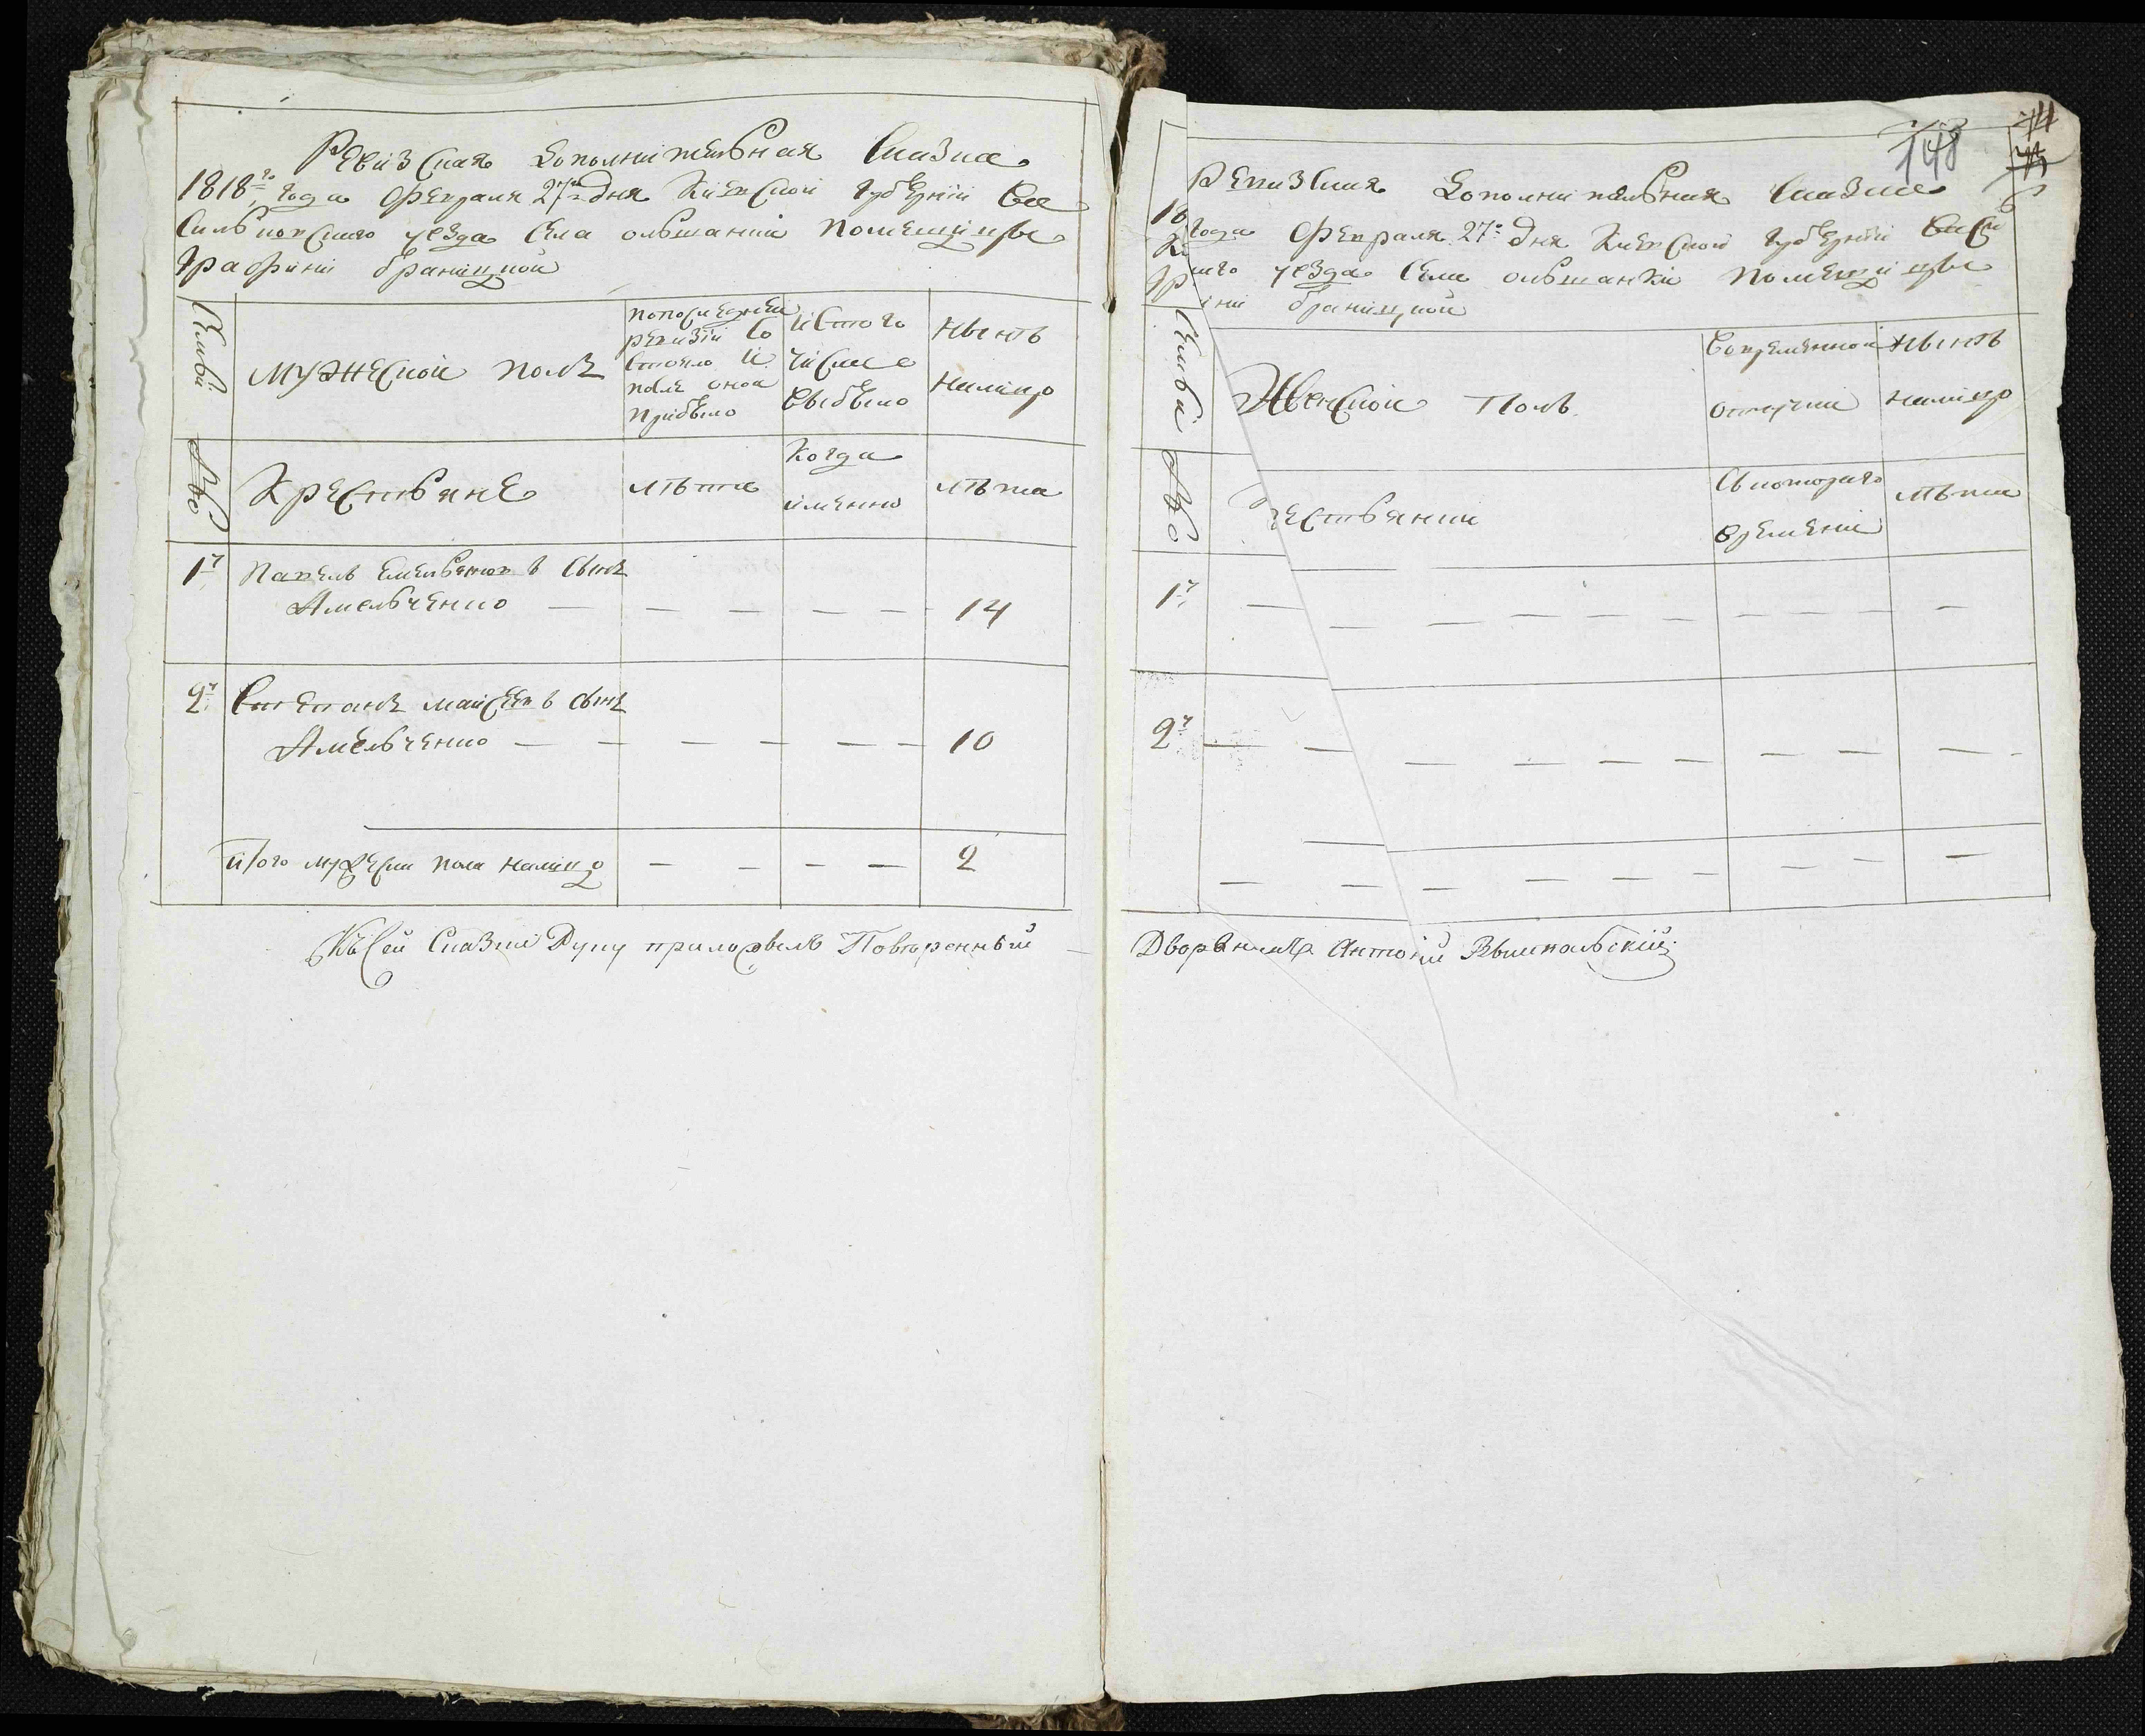 Ревизская дополнительная сказка
1818го года февраля 27го дня Киевской губернии Ва
сильковского уезда села ольшанки помещицы
графини браницкой
Семьи
мужеской полъ
попоследней
ревизии со
стояло и
после оной
прибыло
и стого
числа
выбыло
нынѣ
налицо
№
Крестьяне
лѣта
когда
именно
лѣта
1й
Павелъ Емельяновъ сынъ
Амельченко — — — — — 14
2й
Степанъ майсеевъ сынъ
Амельченко — — — — — — 10
итого мужеска пола налицо — — — — 2
Къ сей сказки Руку приложилъ Повѣренный —
148
Ревизская дополнительная сказка
18
года февраля 27го дня Киевской губернии Васи
Ки
каго уезда села ольшанки помещицы
гр
ини браницкой
Семьи
Женской Полъ
Вовременной
отлучки
нынѣ
налицо
№
рестьянки
Съ котораго
времени
лѣта
1й — — — — — — — — — — —
2й — — — — — — — — — —
— — — — — — — — —
Дворянинъ Антоній